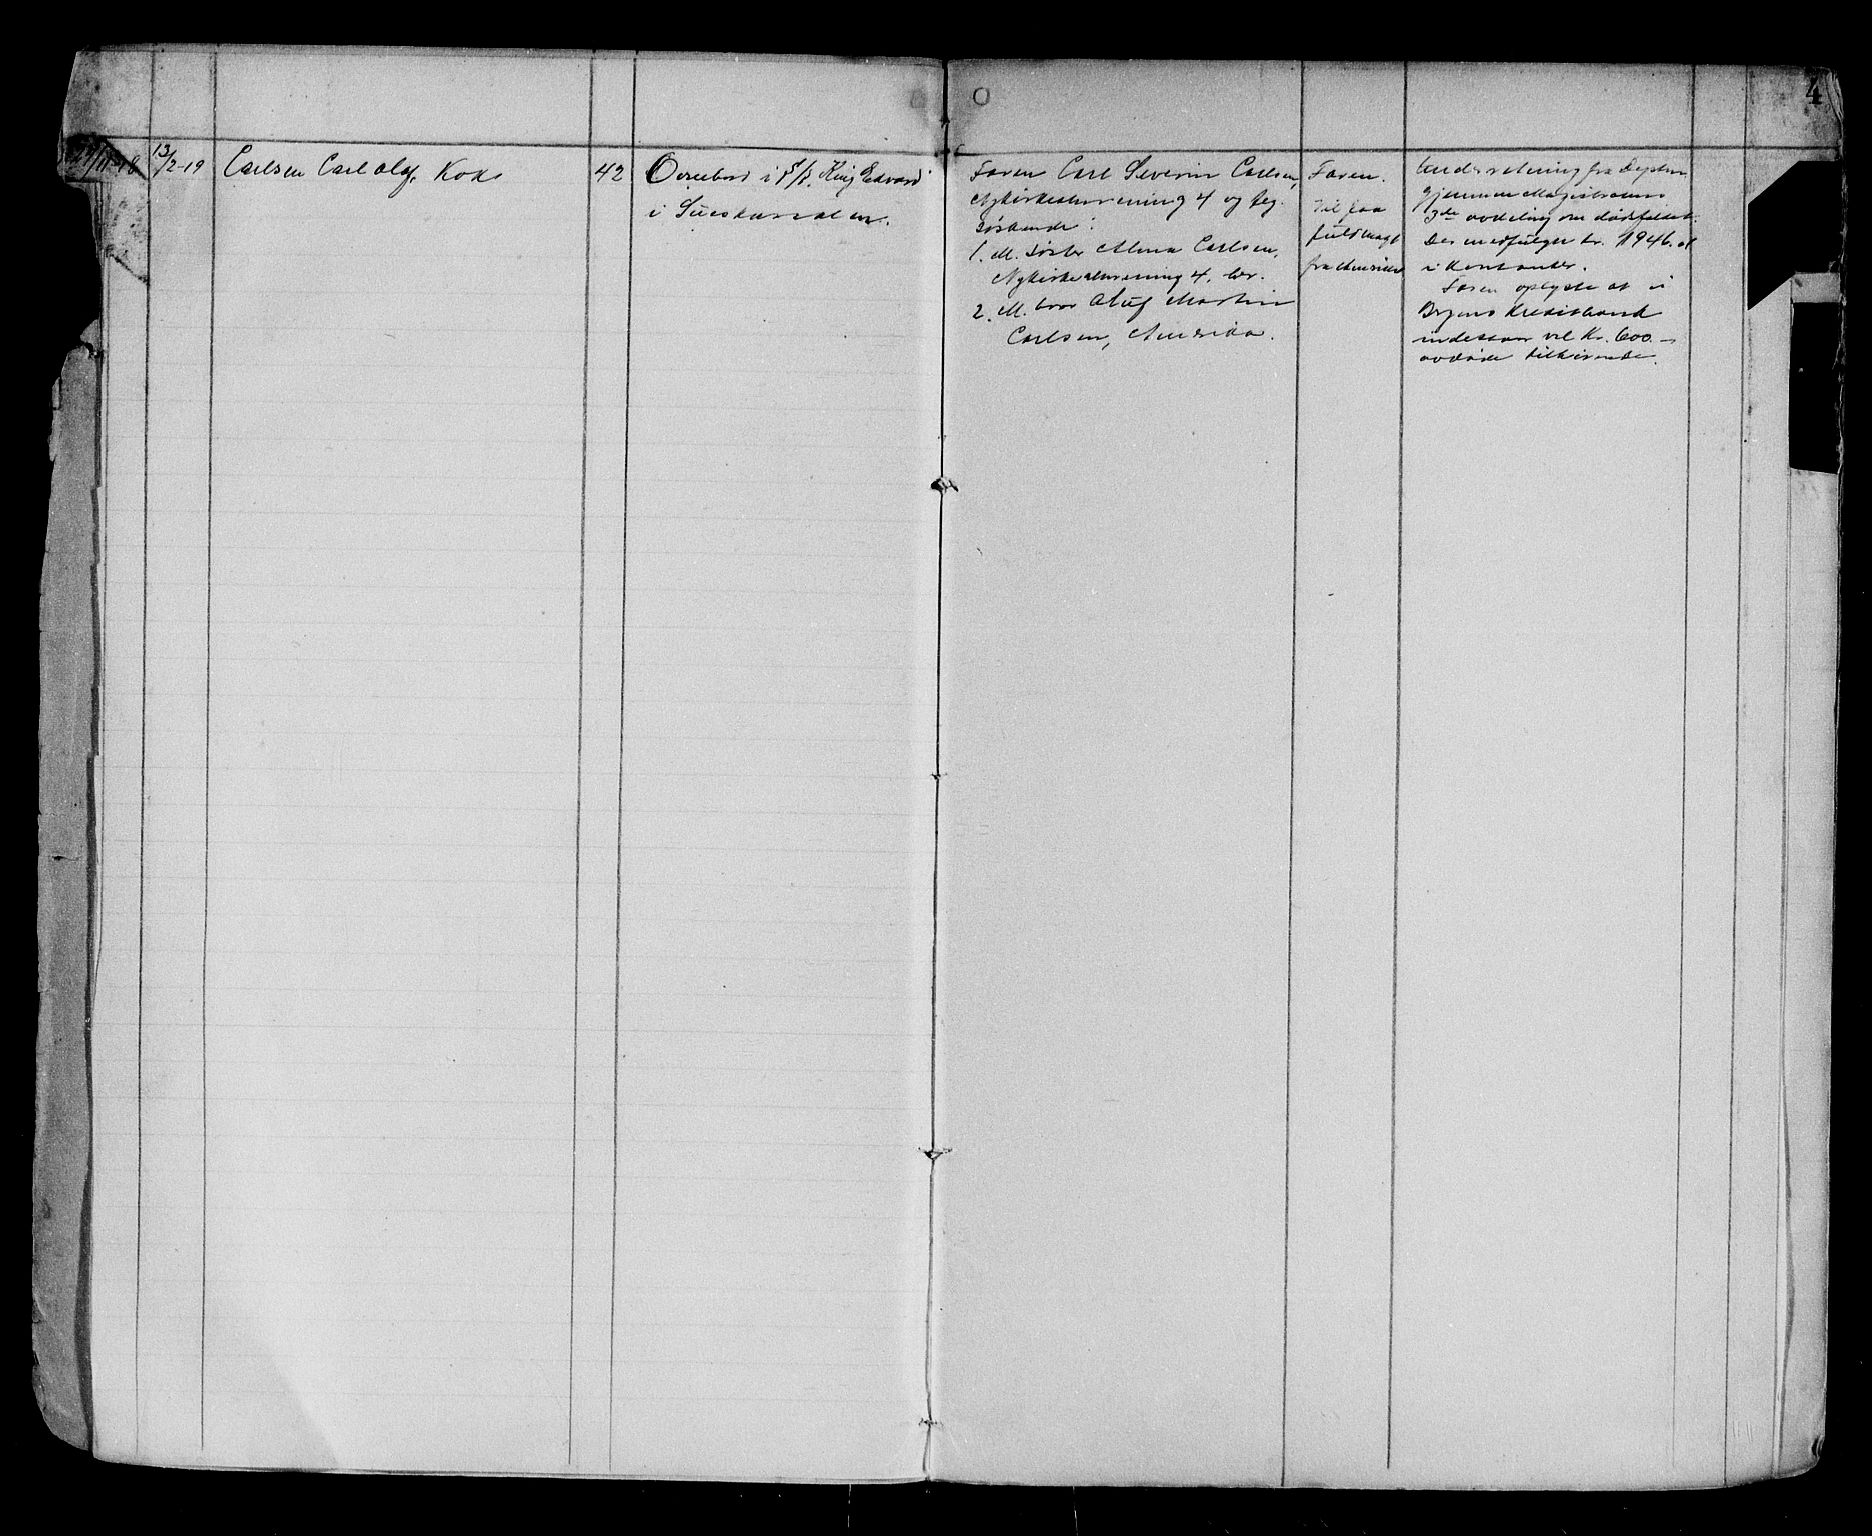 4
13/2-19
Carlsen Carl Olaf, Kok.
42
Overbord i S/S. King Edvard
i Sueskanalen.
Faren Carl Severin Carlsen,
Nykirkealmenning 4 og
søskende:
1. M. søster Alma Carlsen,
Nykirkealmenning 4, her.
2. M. bror Oluf Martin
Carlsen, Amerika.
Faren.
Vil faa
fuldmagt
fra Amerika
Underretning fra
gjennem Magistratens
3die avdeling om dødsfaldet.
Der medfølger kr. 1946.
i kontanter.
Faren oplyste at i
Bergens Kreditbank
indestaar vel Kr. 600.-
avdøde tilhørende.